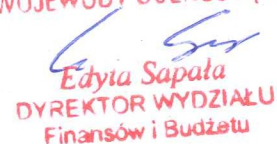 WOJEWODY
Edyta Sapała
DYREKTOR WYDZIAŁU
Finansów i Budżetu